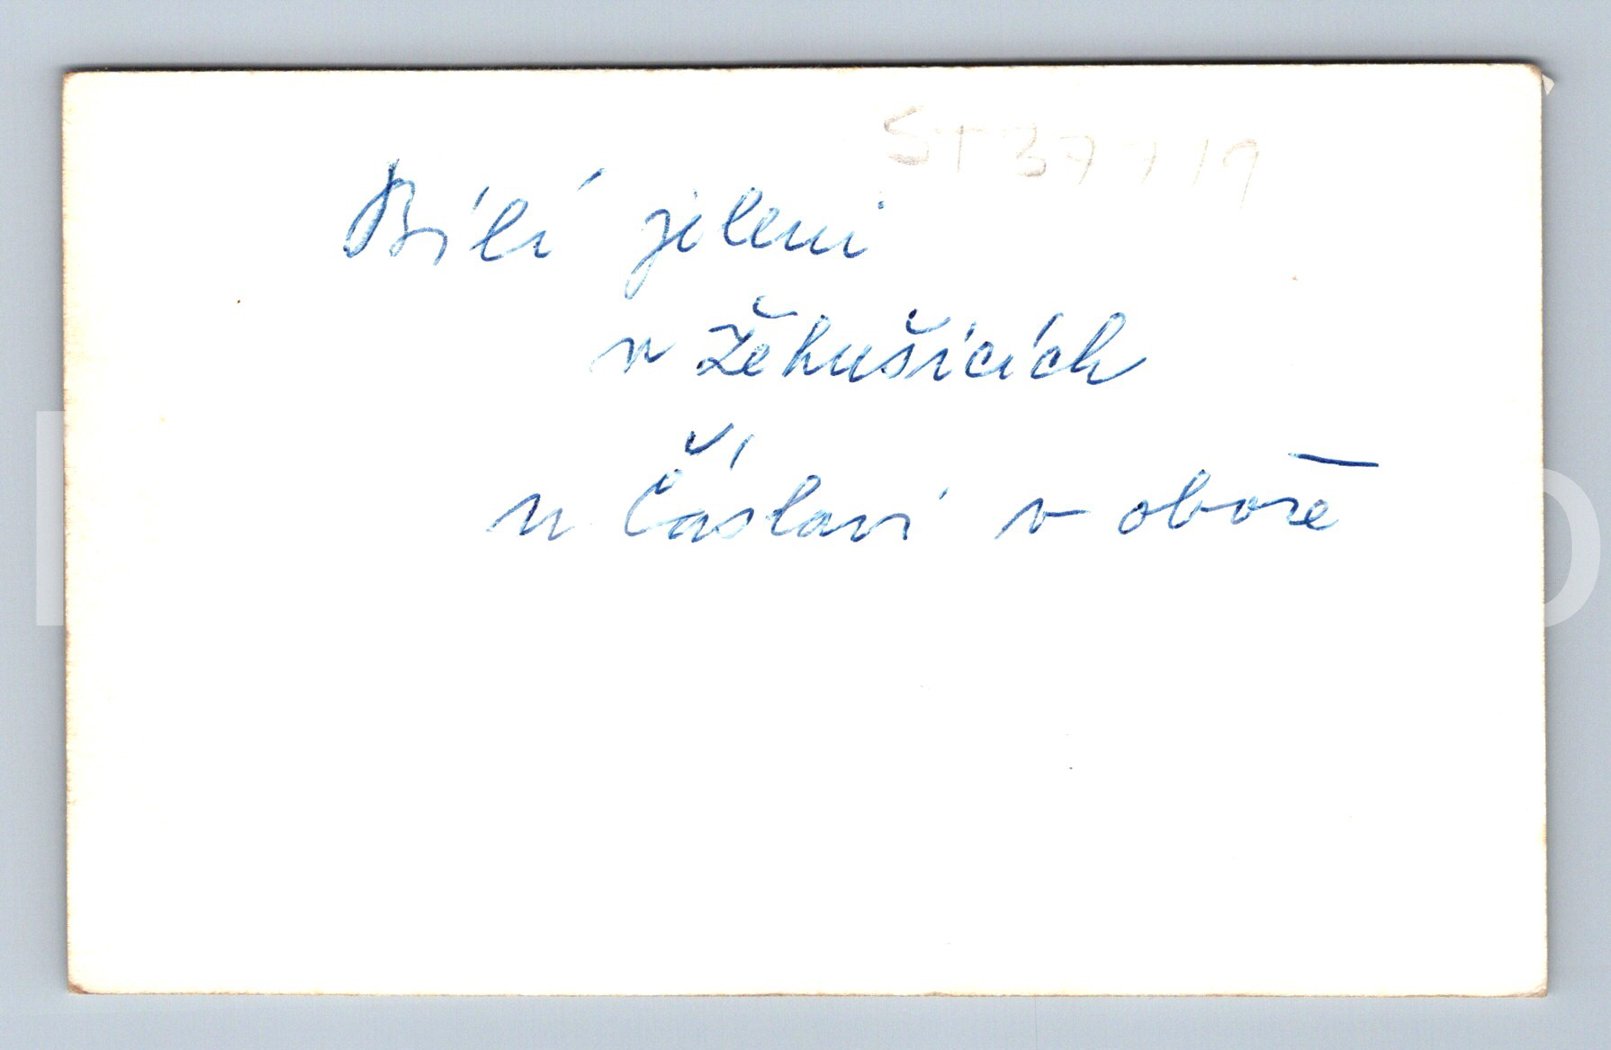 ST37719
Bílí jeleni
v Žehušicích
u Čáslavi v oboře